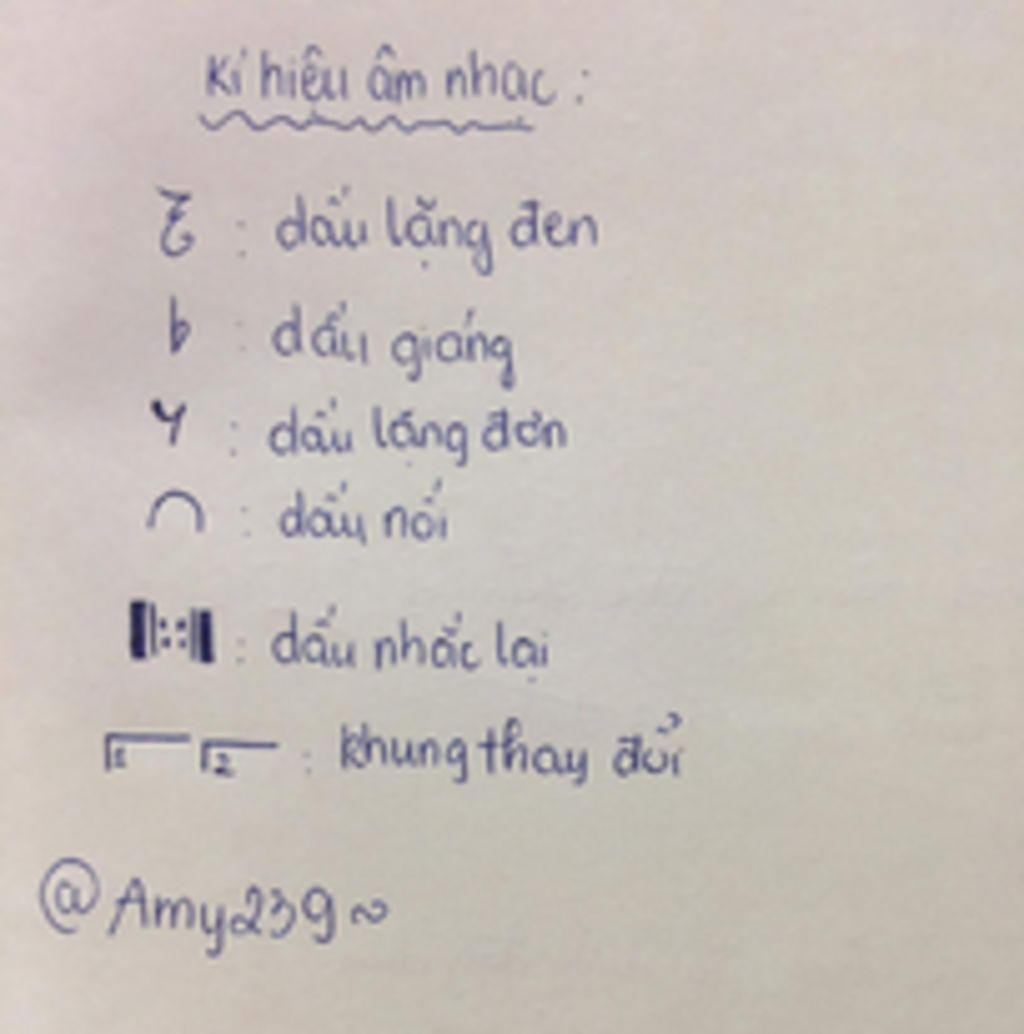 Kí hiệu âm nhạc :
𝄽 : dấu lặng đen
♭ : dấu giáng
𝄾 : dấu lặng đơn
⌒ : dấu nối
𝄆𝄇 : dấu nhắc lại
1 2 : khung thay đổi
@Amy239~